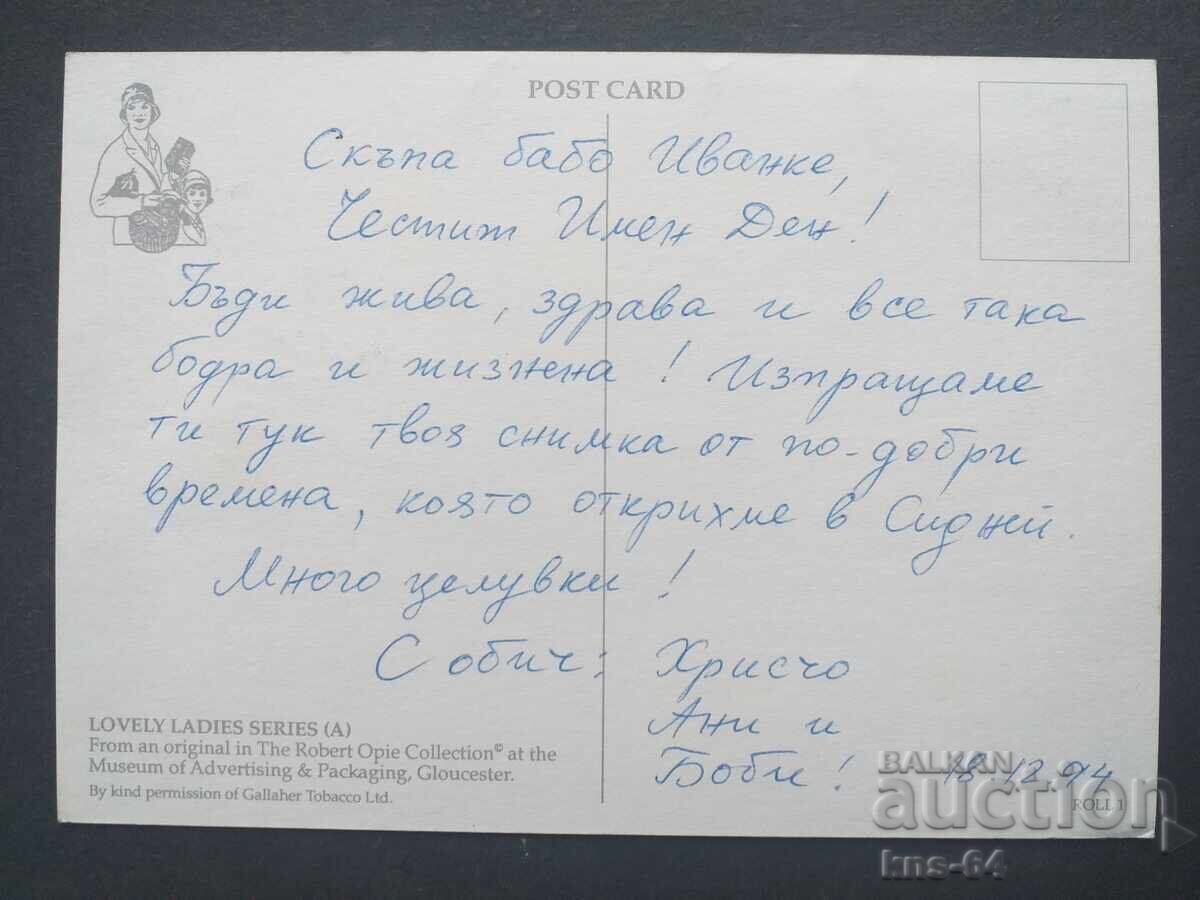 POST CARD
Скъпа бабо Иванке,
Честит Имен Ден!
Бъди жива, здрава и все така
бодра и жизнена! Изпращаме
ти тук твоя снимка от по-добри
времена, която открихме в Сидней.
Много целувки!
С обич: Христо
Ани и
Боби! 18.12.94
LOVELY LADIES SERIES (A)
From an original in The Robert Opie Collection© at the
Museum of Advertising & Packaging, Gloucester.
By kind permission of Gallaher Tobacco Ltd.
ROLL 1
BALKAN
auction
kns-64